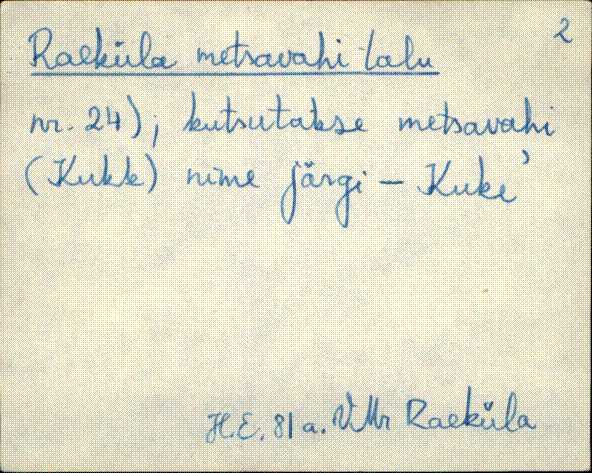 2
Raeküla metsavahi talu
nr. 24); kutsutakse metsavahi
(Kukk) nime järgi – Kuke'
H.E. 81 a. VMr Raeküla